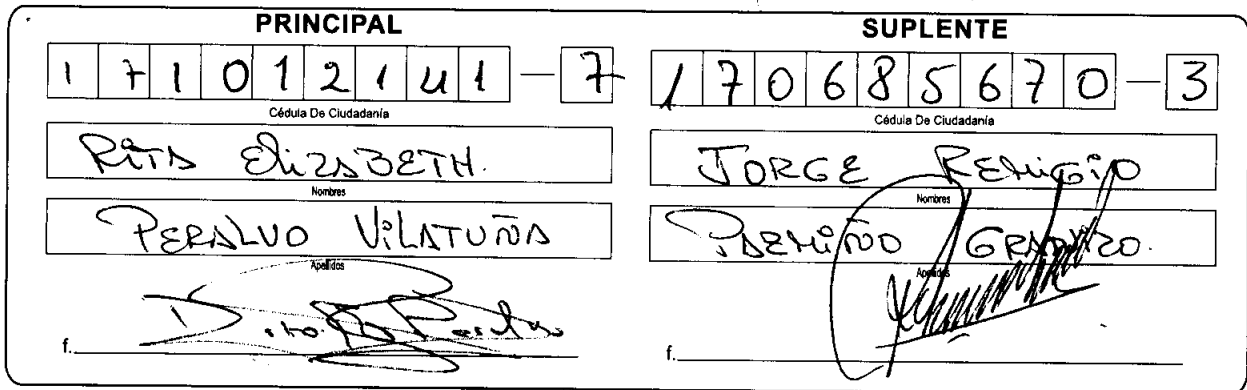 PRINCIPAL
1 7 1 0 1 2 1 4 1 — 7
Cédula De Ciudadanía
RITA ELIZABETH.
Nombres
PERALVO VILATUÑA
Apellidos
f.
SUPLENTE
1 7 0 6 8 5 6 7 0 — 3
Cédula De Ciudadanía
JORGE REMIGIO
Nombres
PAZMIÑO
Apellidos
f.